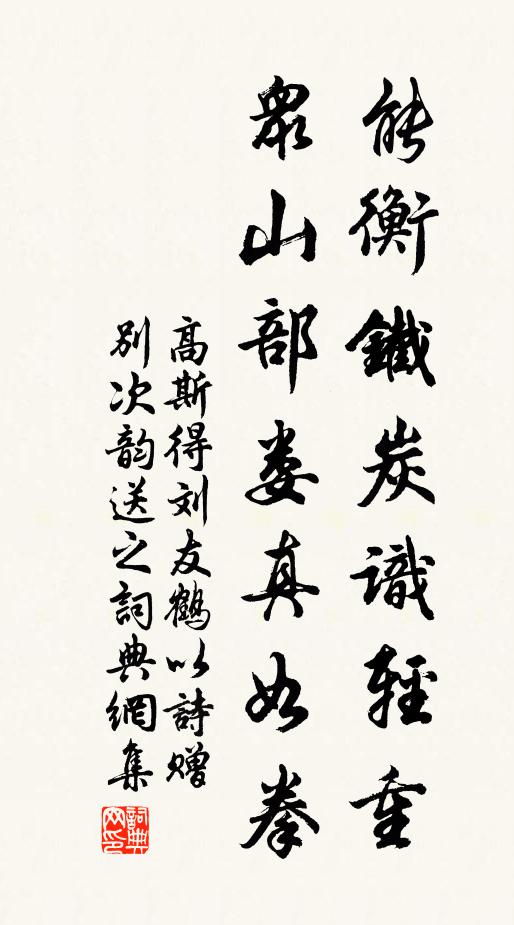 能衡鐵炭識輕重
眾山部娄真如拳
高斯得刘友鶴以詩赠
別次韵送之詞典網集
詞典
网印